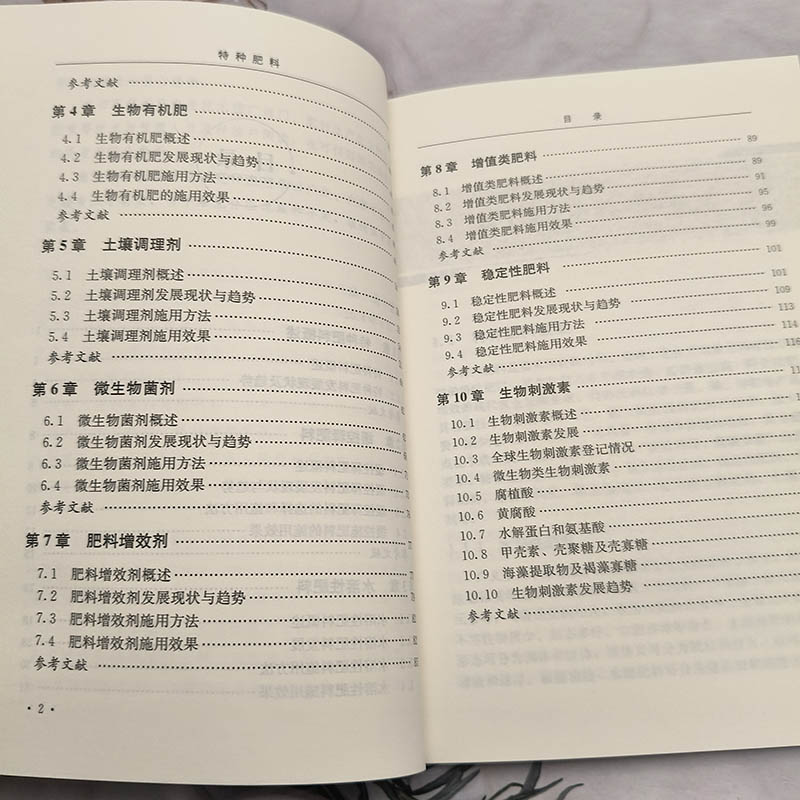 特种肥料
参考文献
第4章 生物有机肥
4.1 生物有机肥概述
4.2 生物有机肥发展现状与趋势
4.3 生物有机肥施用方法
4.4 生物有机肥的施用效果
参考文献
第5章 土壤调理剂
5.1 土壤调理剂概述
5.2 土壤调理剂发展现状与趋势
5.3 土壤调理剂施用方法
5.4 土壤调理剂施用效果
参考文献
第6章 微生物菌剂
6.1 微生物菌剂概述
6.2 微生物菌剂发展现状与趋势
6.3 微生物菌剂施用方法
6.4 微生物菌剂施用效果
参考文献
第7章 肥料增效剂
7.1 肥料增效剂概述
7.2 肥料增效剂发展现状与趋势
7.3 肥料增效剂施用方法
7.4 肥料增效剂施用效果
参考文献
· 2 ·
目录
第8章 增值类肥料 89
8.1 增值类肥料概述 89
8.2 增值类肥料发展现状与趋势 91
8.3 增值类肥料施用方法 95
8.4 增值类肥料施用效果 96
参考文献 99
第9章 稳定性肥料 101
9.1 稳定性肥料概述 101
9.2 稳定性肥料发展现状与趋势 109
9.3 稳定性肥料施用方法 113
9.4 稳定性肥料施用效果 114
参考文献 116
第10章 生物刺激素
10.1 生物刺激素概述
10.2 生物刺激素发展
10.3 全球生物刺激素登记情况
10.4 微生物类生物刺激素
10.5 腐植酸
10.6 黄腐酸
10.7 水解蛋白和氨基酸
10.8 甲壳素、壳聚糖及壳寡糖
10.9 海藻提取物及褐藻寡糖
10.10 生物刺激素发展趋势
参考文献